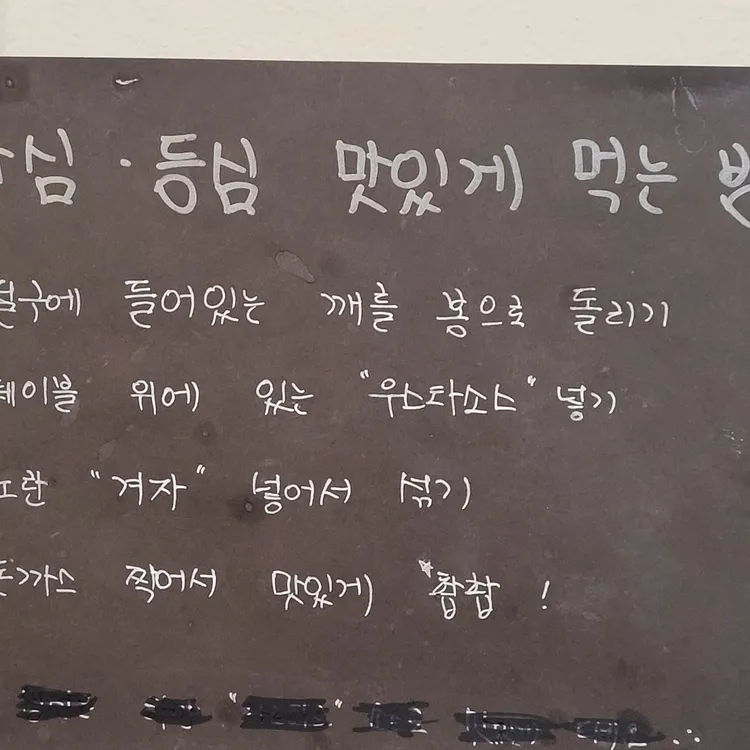 심 · 등심 맛있게 먹는
절구에 들어있는 깨를 봉으로 돌리기
테이블 위에 있는 "우스타소스" 넣기
노란 "겨자" 넣어서 섞기
돈가스 찍어서 맛있게 찹찹 !